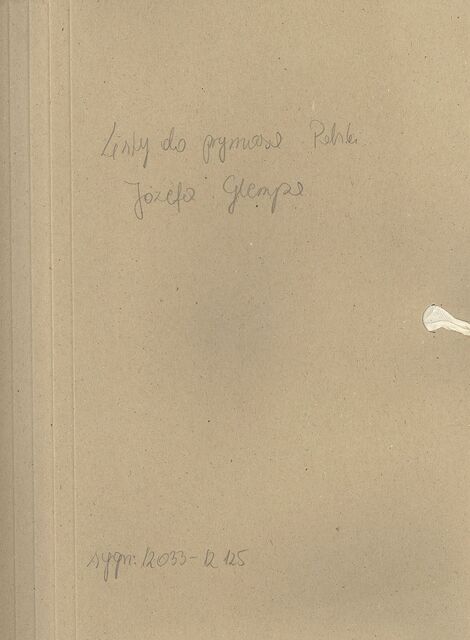 Listy do prymasa Polski
Józefa Glempa
sygn: 12033-12 125